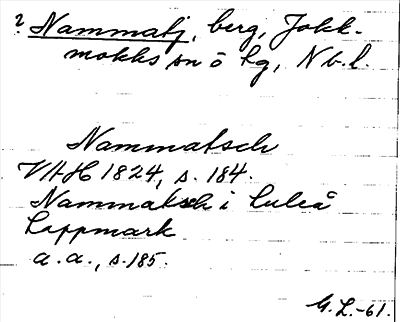 ? Nammatj, berg, Jokk-
mokks sn o lg, Nb.l.
Nammatsch
VAH 1824, s. 184.
Nammatsch i Luleå
Lappmark
a.a., s. 185.
G.L.-61.